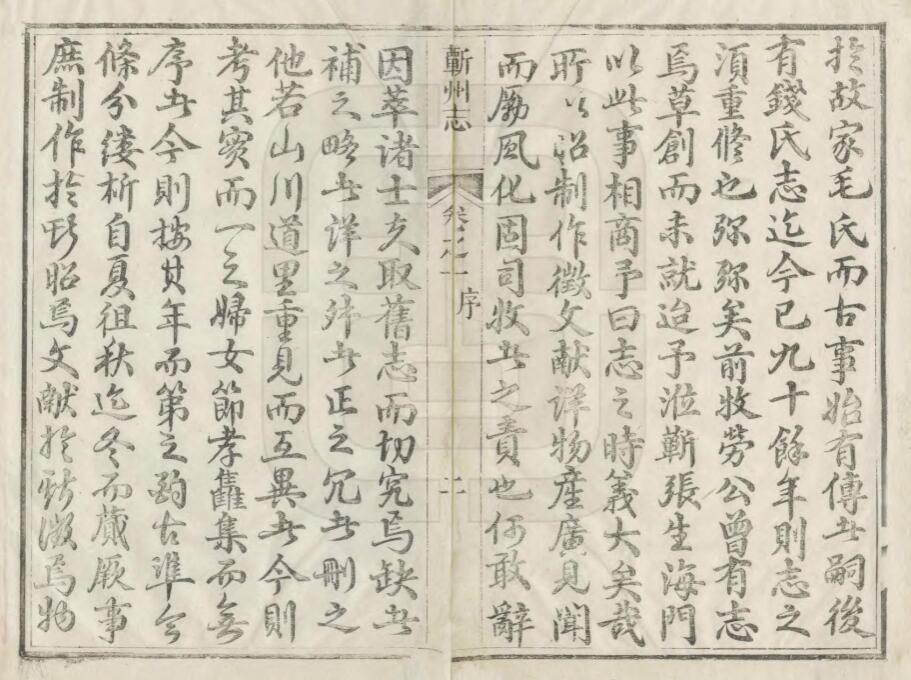 於故家毛氏而古事始有傳者嗣後
有錢氏志迄今已九十餘年則志之
須重修也弥弥矣前牧勞公曾有志
焉草創而未就迨予涖蘄張生海門
以此事相商予曰志之時義大矣哉
所以昭制作徵文獻詳物產廣見聞
而勵風化固司牧者之責也何敢辭
蘄州志
卷之一 序
二
因萃諸士夫取舊志而切究焉缺者
補之略者詳之舛者正之冗者刪之
他若山川道里重見而互異者今則
考其實而一之婦女節孝雜集而無
序者今則按其年而第之酌古準今
條分縷析自夏徂秋迄冬而蕆厥事
庶制作於斯昭焉文獻於斯徵焉物